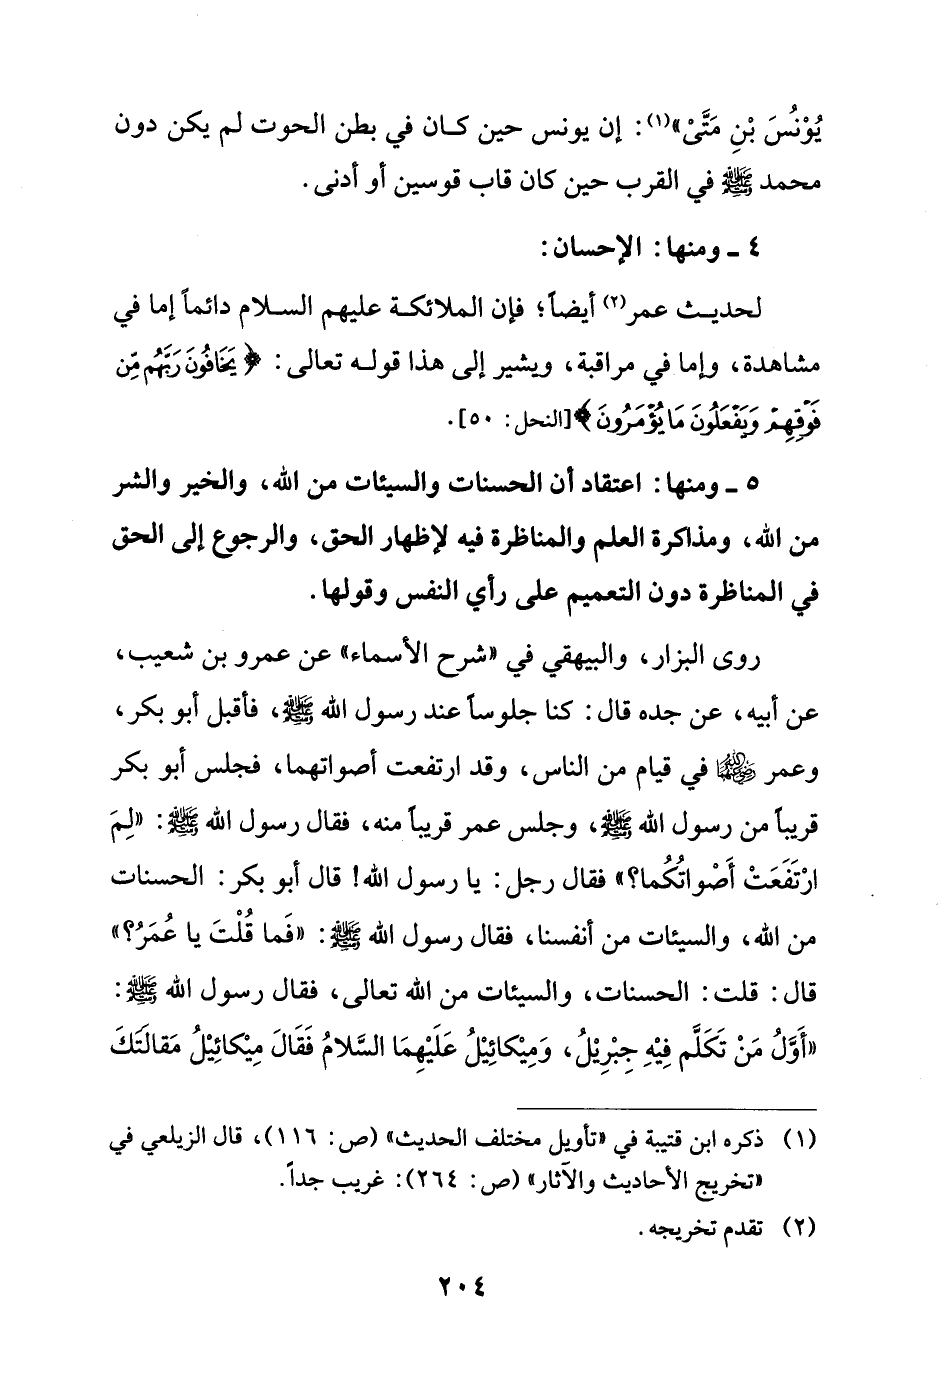 يُوْنُسَ بْنِ مَتَّىْ»(١): إن يونس حين كان في بطن الحوت لم يكن دون
محمد ﷺ في القرب حين كان قاب قوسين أو أدنى.
٤ ـ ومنها: الإحسان:
لحديث عمر(٢) أيضاً؛ فإن الملائكة عليهم السلام دائماً إما في
مشاهدة، وإما في مراقبة، ويشير إلى هذا قوله تعالى: ﴿ يَخَافُونَ رَبَّهُم مِّن
فَوْقِهِمْ وَيَفْعَلُونَ مَا يُؤْمَرُونَ ﴾[النحل: ٥٠].
٥ ـ ومنها: اعتقاد أن الحسنات والسيئات من الله، والخير والشر
من الله، ومذاكرة العلم والمناظرة فيه لإظهار الحق، والرجوع إلى الحق
في المناظرة دون التعميم على رأي النفس وقولها.
روى البزار، والبيهقي في «شرح الأسماء» عن عمرو بن شعيب،
عن أبيه، عن جده قال: كنا جلوساً عند رسول الله ﷺ، فأقبل أبو بكر،
وعمر رضي الله عنهما في قيام من الناس، وقد ارتفعت أصواتهما، فجلس أبو بكر
قريباً من رسول الله ﷺ، وجلس عمر قريباً منه، فقال رسول الله ﷺ: «لِمَ
ارْتَفَعَتْ أَصْواتُكُما؟» فقال رجل: يا رسول الله! قال أبو بكر: الحسنات
من الله، والسيئات من أنفسنا، فقال رسول الله ﷺ: «فَما قُلْتَ يا عُمَرُ؟»
قال: قلت: الحسنات، والسيئات من الله تعالى، فقال رسول الله ﷺ:
«أَوَّلُ مَنْ تَكَلَّم فِيْهِ جِبْرِيْلُ، وَمِيْكائِيْلُ عَلَيْهِمَا السَّلامُ فَقَالَ مِيْكائِيْلُ مَقالَتَكَ
(١) ذكره ابن قتيبة في «تأويل مختلف الحديث» (ص: ١١٦)، قال الزيلعي في
«تخريج الأحاديث والآثار» (ص: ٢٦٤): غريب جداً.
(٢) تقدم تخريجه.
٢٠٤